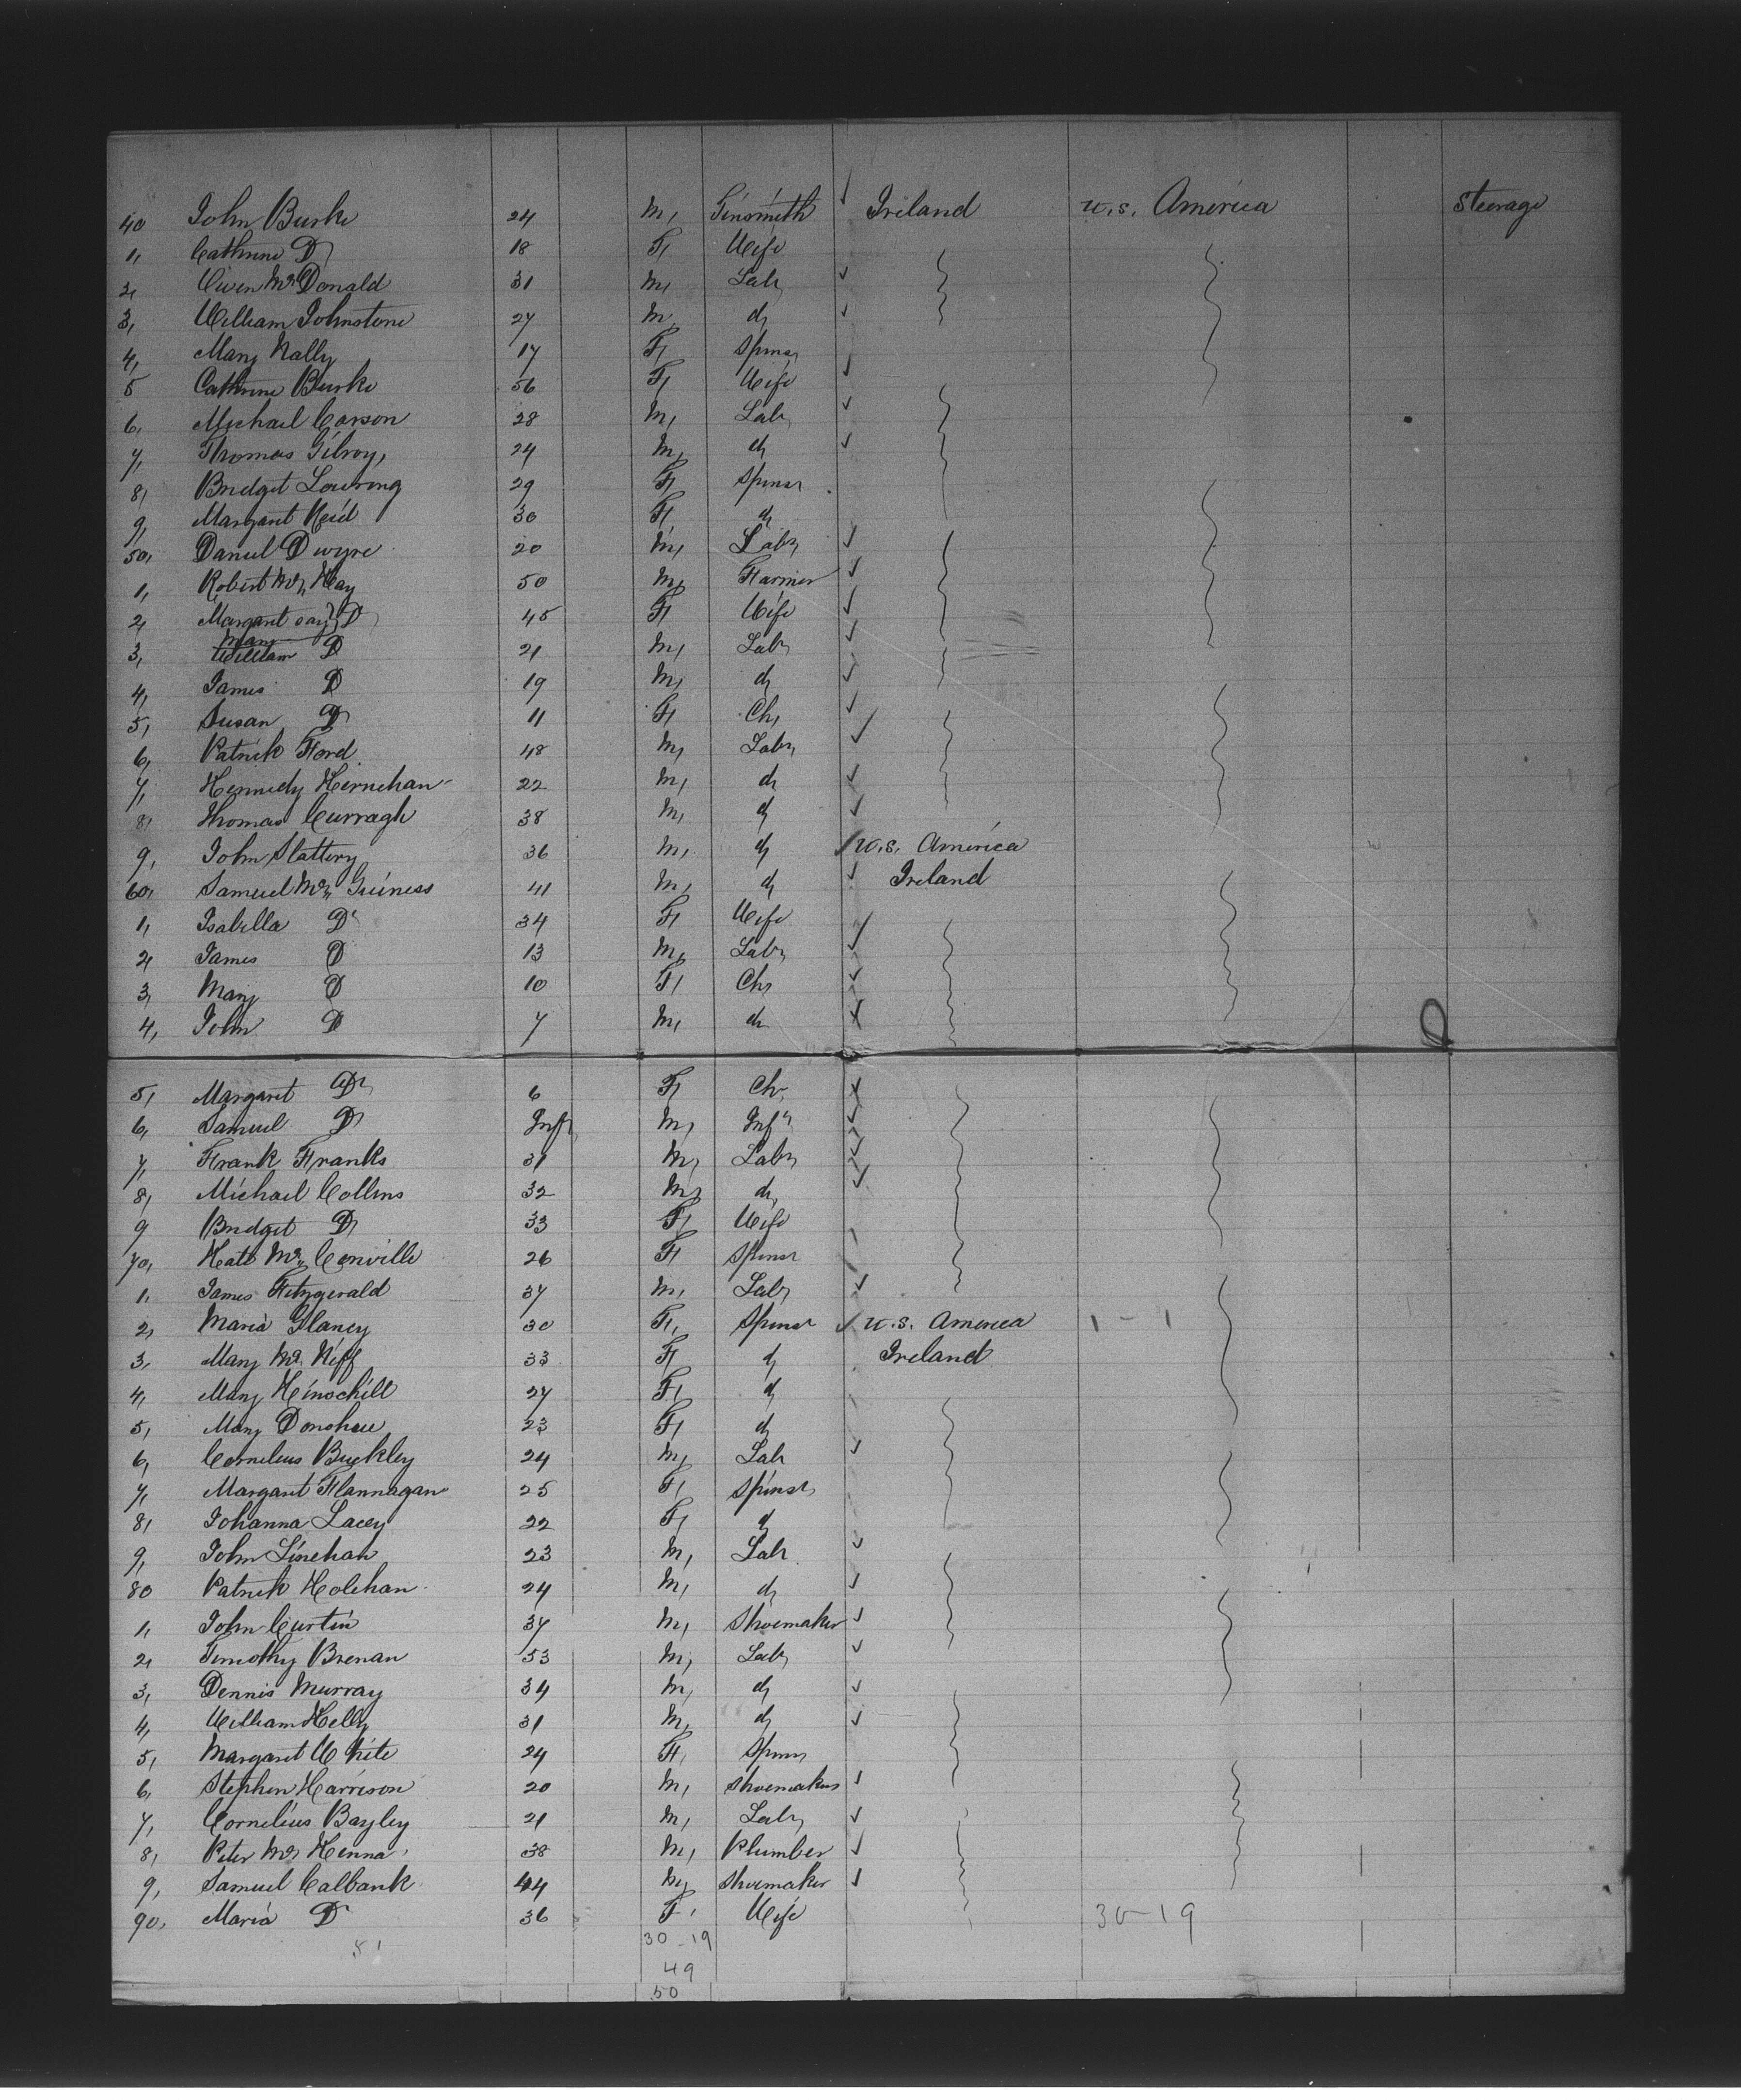 40 John Burke 24 M, Tinsmith Ireland U.S. America Steerage
1, Cathrine Do 18 F, Wife
2, Owen Mc Donald 31 M, Labr
3, William Johnstone 27 M, do
4, Mary Nally 17 F, Spinsr
5 Cathrine Burke 56 F, Wife
6, Michael Carson 28 M, Labr
7, Thomas Gilroy, 24 M, do
8, Bridget Louring 29 F, Spinsr
9, Margaret Reid 30 F, do
50, Daniel Dwyre 20 M, Labr
1, Robert Mc Kay 50 M, Farmer
2, Margaret say Do 45 F, Wife
Mary
3, William Do 21 M, Labr
4, James Do 19 M, do
5, Susan Do 11 F, Ch,
6, Patrick Ford 48 M, Labr
7, Kennedy Kernehan 22 M, do
8, Thomas Curragh 38 M, do
9, John Slattery 36 M, do U.S. America
60, Samuel Mc Guiness 41 M, do Ireland
1, Isabella Do 34 F, Wife
2, James Do 13 M, Labr
3, Mary Do 10 F, Ch,
4, John Do 7 M, do
5, Margaret Do 6 F, Ch,
6, Samuel Do Inft M, Inft
7, Frank Franks 31 M, Labr
8, Michael Collins 32 M, do
9 Bridget Do 33 F, Wife
70, Kate Mc Conville 26 F, Spinsr
1, James Fitzgerald 37 M, Labr
2, Maria Glancy 30 F, Spinsr U.S. America 1 - 1
3, Mary Mc Niff 33 F, do Ireland
4, Mary 27 F, do
5, Mary Donohue 23 F, do
6, Cornelius Buckley 24 M, Labr
7, Margaret Flannagan 25 F, Spinsr
8, Johanna Lacey 22 F, do
9, John Linehan 23 M, Labr
80 Patrick Holehan 24 M, do
1, John Curtin 37 M, Shoemaker
2, Timothy Brenan 53 M, Labr
3, Dennis Murray 34 M, do
4, William Kelly 31 M, do
5, Margaret White 24 F, Spinsr
6, Stephen Harrison 20 M, Shoemaker
7, Cornelius Bayley 21 M, Labr
8, Peter Mc Kenna 38 M, Plumber
9, Samuel Calbank 44 M, Shoemaker
90, Maria Do 36 F, Wife 30-19
51 30-19
49
50